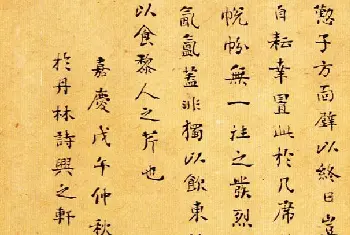 子方面壁以終日豈
自耘幸置此於几席
恍無一注之發烈
氤氳蓋非獨以飲東
以食黎人之芹也
嘉慶戊午仲秋
於丹林詩興之軒